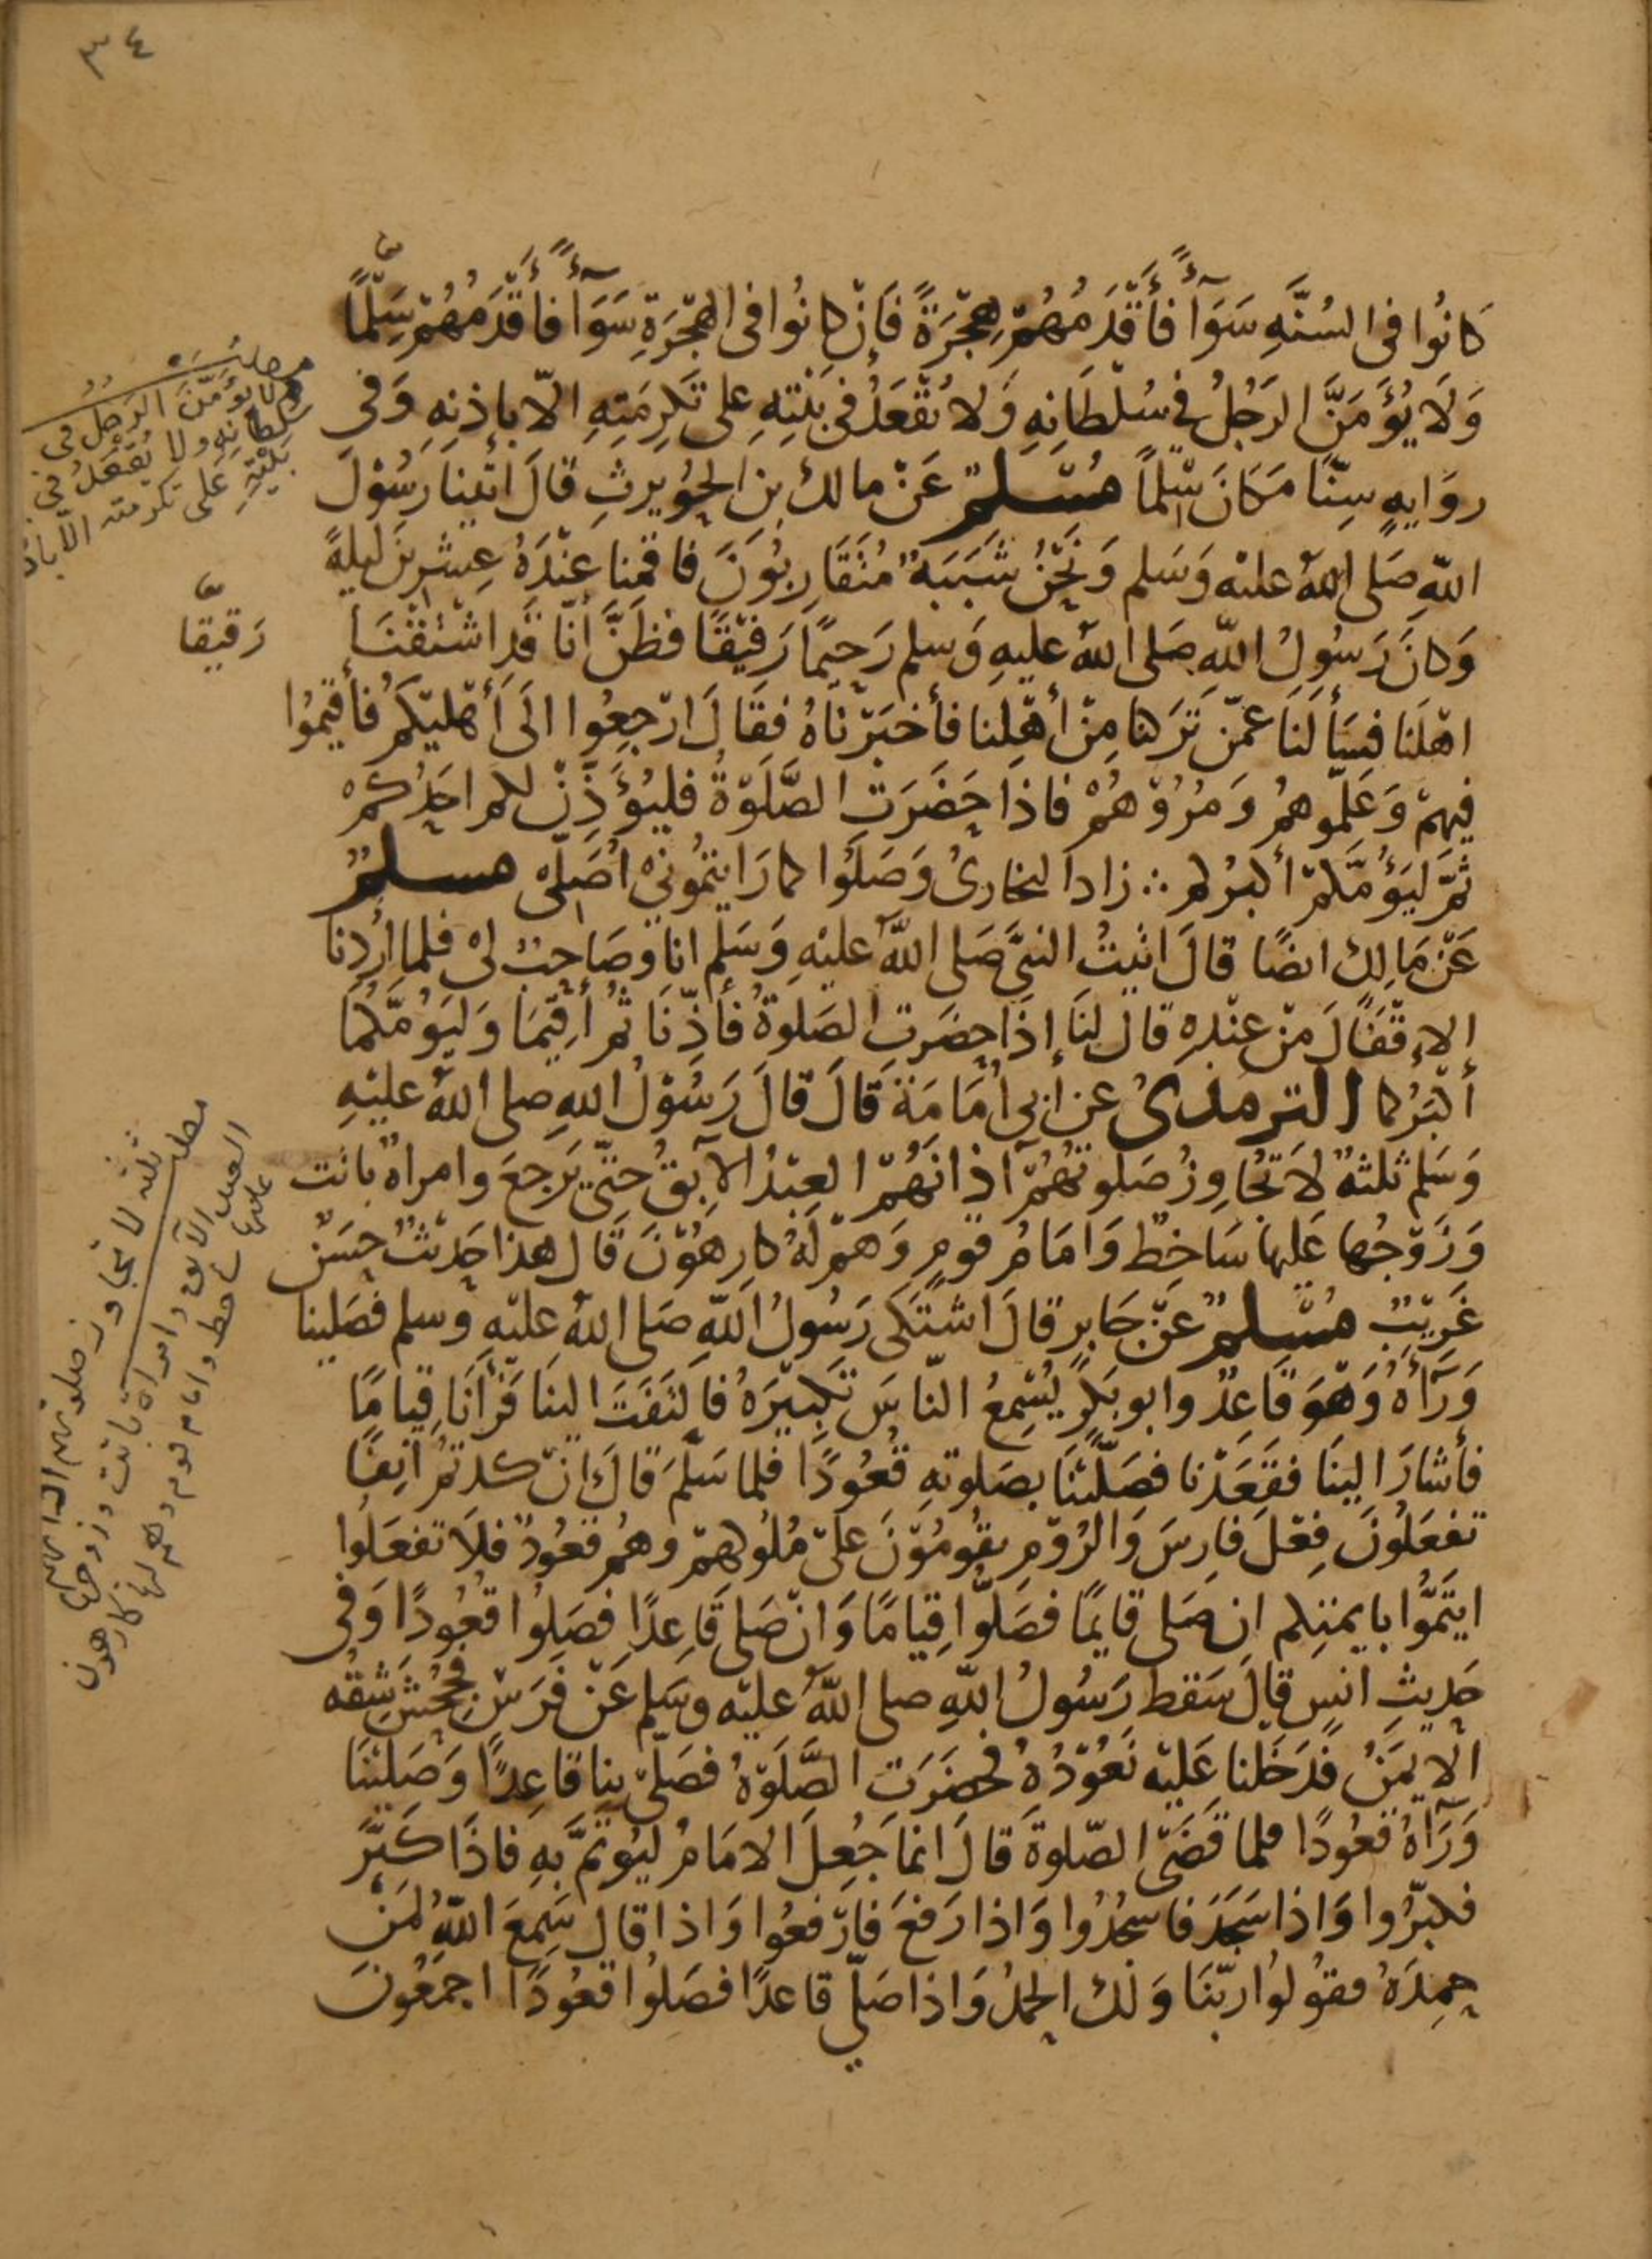 ٣٤
كَانُوا فى السُنَّهِ سَوَآءً فأَقْدَمُهُمْ هِجْرَةً فَإِنْ كانُوا فى الهِجْرَةِ سَوَآءً فأَقْدَمُهُمْ سِلْمًا
وَلَا يُؤَمَّنَّ الرَجُلُ فى سُلْطَانِهِ وَلا يُقْعَدُ فى بَيْتِهِ على تَكرِمَتِهِ الّا بإذنِهِ وَفى
روَايهٍ سِنًّا مَكَانَ سِلْمًا مُسْلم عَنْ مالك بن الحُوَيرثِ قالَ اتَيْنا رَسُوْلَ
اللّهِ صَلى اللهُ عليْه وَسَلم وَنَحْنُ شَبَبَةٌ مُتَقَارِبُونَ فاقمنا عِنْدَهُ عِشْرِيْنَ ليلةً
وَكانَ رَسُولُ اللّهِ صَلى اللهُ عليهِ وَسلم رَحِيْمًا رَفِيْقًا فظَنَّ أنّا قَدِ اشْتَقْنَا
اهْلَنا فسَأَلَنَا عَمّن تَرَكنا مِنْ أَهْلِنا فأخبَرْنَاهُ فقَالَ ارْجِعُوا الَى أَهْليْكُمْ فأَقيْمُوا
فِيهِمْ وَعَلِّموهمُ وَمُرُوْهُمْ فاذَا حَضَرَتِ الصَّلَوةُ فليُؤَذِّنْ لكم احَدُكُمْ
ثمَّ ليَؤُمَّكمْ أكبرُكم ∴ زاد البخارىُ وَصَلُّوا كما رَايتمُونىْ اُصَلىْ مسلمٌ
عَنْ مَالِك ايضًا قالَ اتيتُ النبيَّ صَلى اللهُ عليْهِ وَسَلم انا وَصَاحِبٌ لىْ فلما أرَدنا
الإِقْفَالَ مِنْ عنْدِهِ قال لنَا إذَا حضَرَتِ الصَلَوةُ فأَذِّنَا ثمُ أَقِيْمَا وَليَؤُمَّكُمَا
أَكْبَرُكما الترمذىُ عن أبى اُمَامَةَ قَالَ قالَ رَسُوْلُ اللهِ صلى اللهُ عليْهِ
وَسَلم ثلثةٌ لاَ تجَاوِزُ صَلَوتهُمْ آذانَهُمْ العبْدُ الآبِقُ حتّى يَرجعَ وامراةٌ باتت
وَزَوْجُها عَليها سَاخطٌ وَامَامُ قومٍ وَهمْ لَهُ كارِهُوْنَ قَال هذا حَديثٌ حسَنٌ
غَرِيْبٌ مُسْلِمٌ عَنْ جَابرٍ قالَ اشتَكَى رَسُولُ اللّهِ صَلى اللهُ عليْهِ وَسلم فصَلينا
وَرَآءَهُ وَهْوَ قَاعِدٌ وابو بَكرٍ يُسْمِعُ النّاسَ تَكبِيْرَهُ فالتَفَتَ الينَا فَرَأنَا قيامًا
فأَشَارَ الينَا فقَعَدْنا فصَلّيْنَا بصَلوتهِ قُعُودًا فلما سَلَّمَ قَالَ انْ كدتمُ آنِفًا
تفعَلُونَ فِعْلَ فارِسَ وَالرُوْمِ يقُومُوْنَ عَلَى مُلُوكهِمْ وهُم قعُودٌ فلَا تفعَلُوا
ايتَمُّوا بايمتِكم ان صَلى قايمًا فصَلوا قِيامًا وَانْ صَلى قَاعِدًا فصَلُوا قُعُودًا وَفى
حَديثِ انسٍ قالَ سَقط رَسُولُ اللّهِ صلى اللّهُ عليْه وسَلم عَنْ فَرَسٍ فجُحِشَ شِقُّه
الايمَنُ فدَخَلنا عَليْه نَعُوْدُهُ فحضَرَتِ الصَّلَوةُ فصَلىّ بِنا قاعِدًا وَصَليْنَا
وَرَآءَهُ قعُودًا فلما قضَى الصّلوةَ قالَ انما جُعِلَ الامَامُ ليُوتمَّ بَهِ فاذَا كَبَّرَ
فكبرّوا وَاذا سَجَدَ فاسجُدُوا وَاذا رَفعَ فَارْفعُوا وَاذا قال سَمِعَ اللّهُ لمَنْ
حمِدَهُ فقوُلُوا ربّنَا وَلك الحمدُ وَاذا صَلّى قاعدًا فصَلُوا قعُودًا اجمعُونَ
مطلب
لا يؤمّنَّ الرجل فى
سلطانه ولا يقعد فى
بيته على تكرمته الّا باذ
رَقيقًا
مطلب
ثلثه لا تجاوز صلوتهم اذانهم
العبد الآبق وامراة باتت وزوجها
عليها ساخط وامام قوم وهم له كارهون